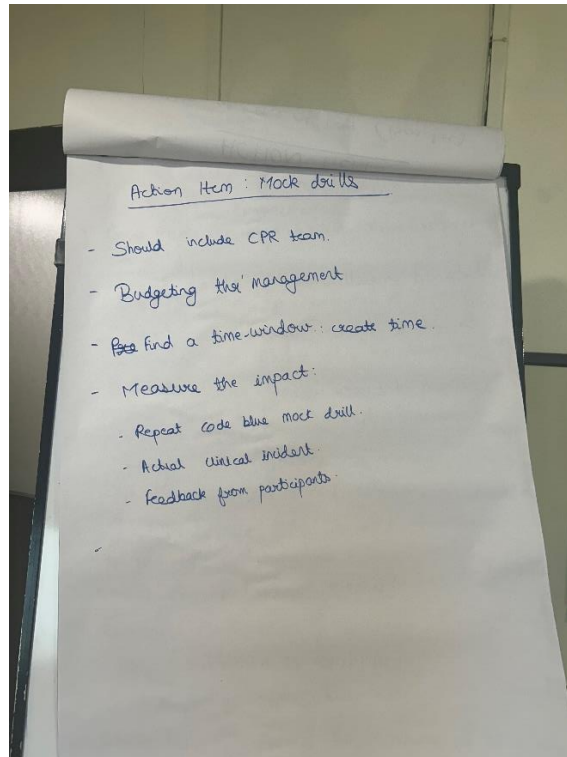 Action Item : Mock drills
- Should include CPR team.
- Budgeting thr' management
- Find a time-window : create time.
- Measure the impact:
- Repeat code blue mock drill.
- Actual clinical incident.
- feedback from participants.